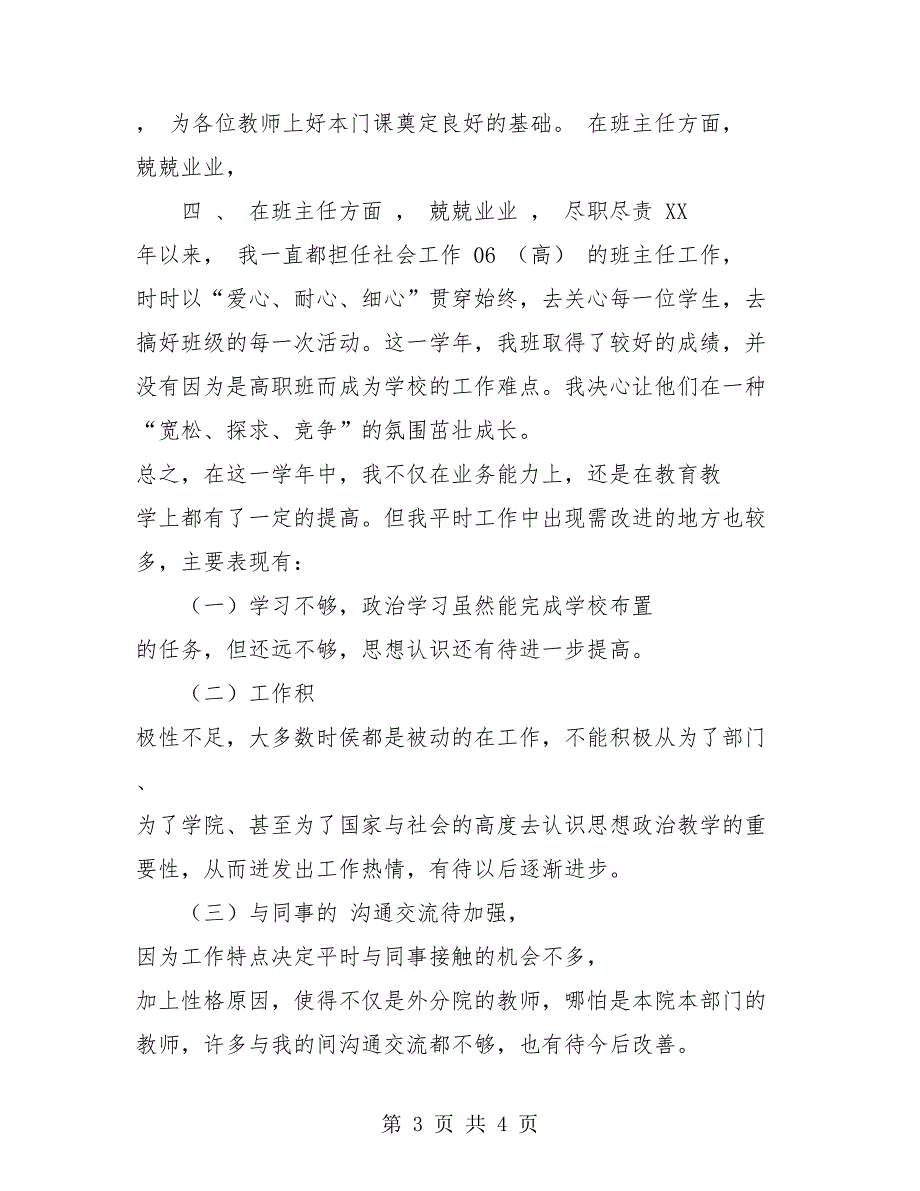 ， 为各位教师上好本门课奠定良好的基础。 在班主任方面，
兢兢业业，
四 、 在班主任方面 ， 兢兢业业 ， 尽职尽责 XX
年以来， 我一直都担任社会工作 06 （高） 的班主任工作，
时时以“爱心、耐心、细心”贯穿始终，去关心每一位学生，去
搞好班级的每一次活动。这一学年，我班取得了较好的成绩，并
没有因为是高职班而成为学校的工作难点。我决心让他们在一种
“宽松、探求、竞争”的氛围茁壮成长。
总之，在这一学年中，我不仅在业务能力上，还是在教育教
学上都有了一定的提高。但我平时工作中出现需改进的地方也较
多，主要表现有：
（一）学习不够，政治学习虽然能完成学校布置
的任务，但还远不够，思想认识还有待进一步提高。
（二）工作积
极性不足，大多数时侯都是被动的在工作，不能积极从为了部门
、
为了学院、甚至为了国家与社会的高度去认识思想政治教学的重
要性，从而迸发出工作热情，有待以后逐渐进步。
（三）与同事的 沟通交流待加强，
因为工作特点决定平时与同事接触的机会不多，
加上性格原因，使得不仅是外分院的教师，哪怕是本院本部门的
教师，许多与我的间沟通交流都不够，也有待今后改善。
第 3 页 共 4 页